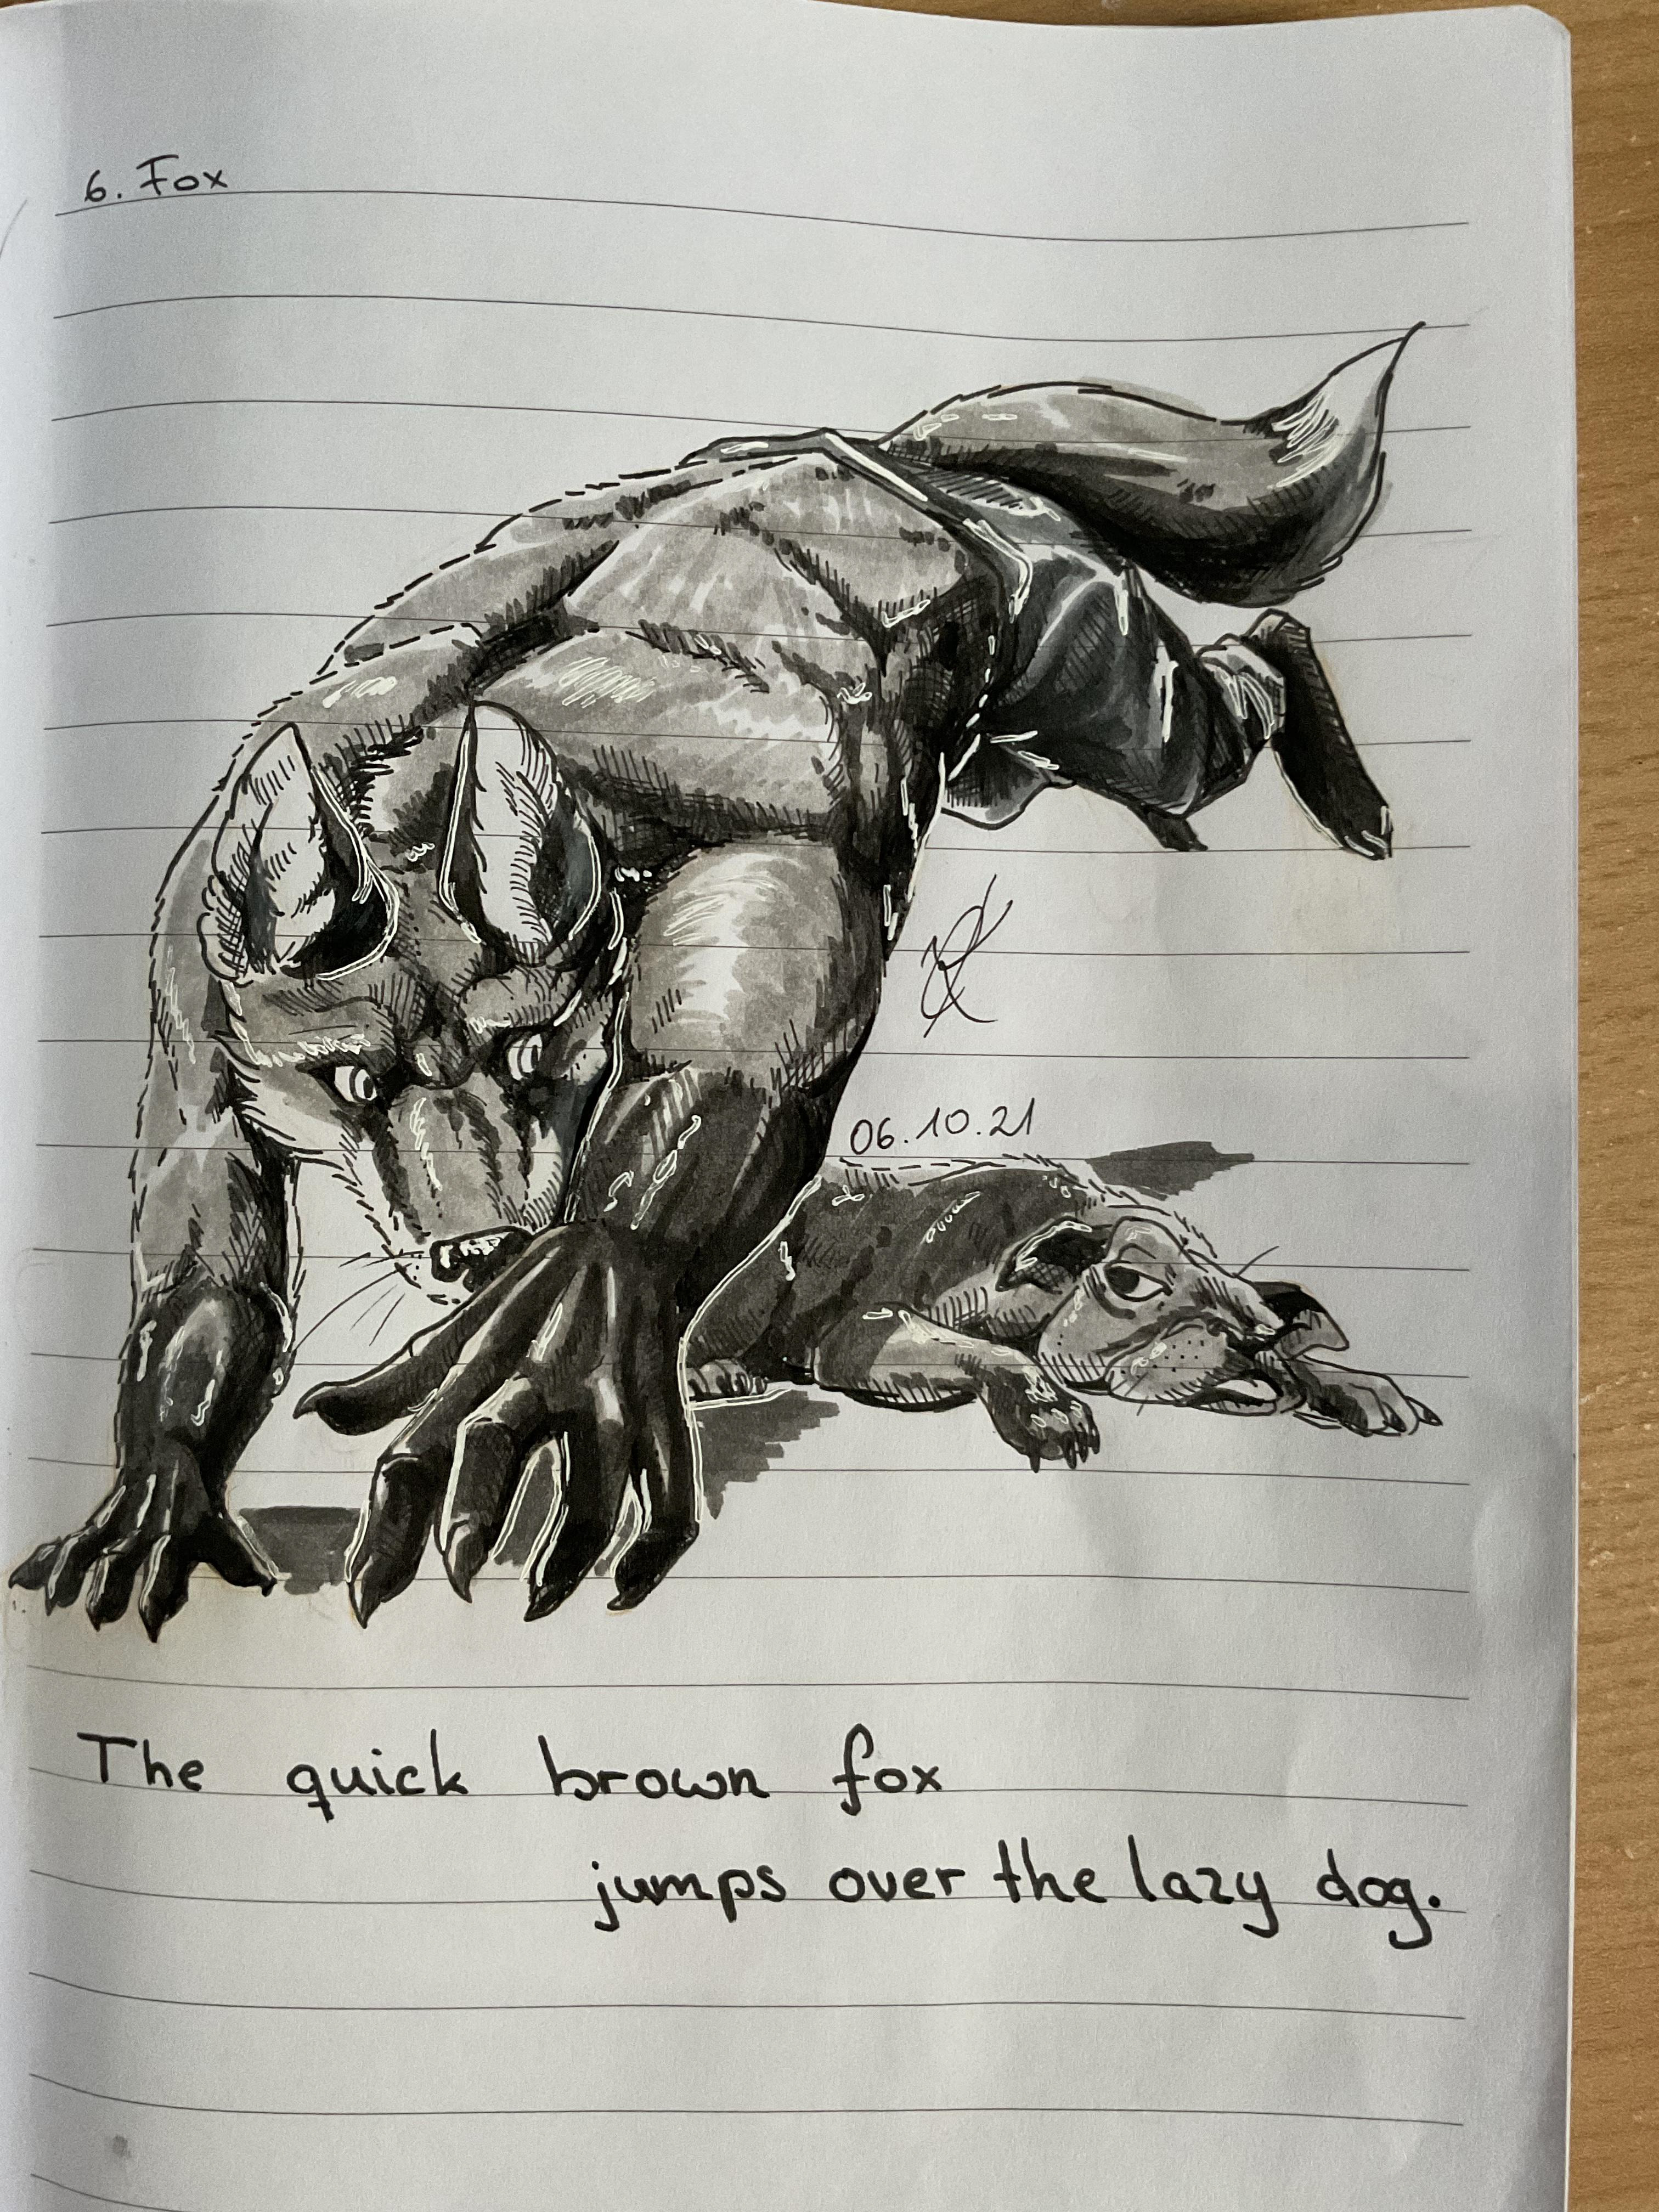 6. Fox
06.10.21
The quick brown fox
jumps over the lazy dog.